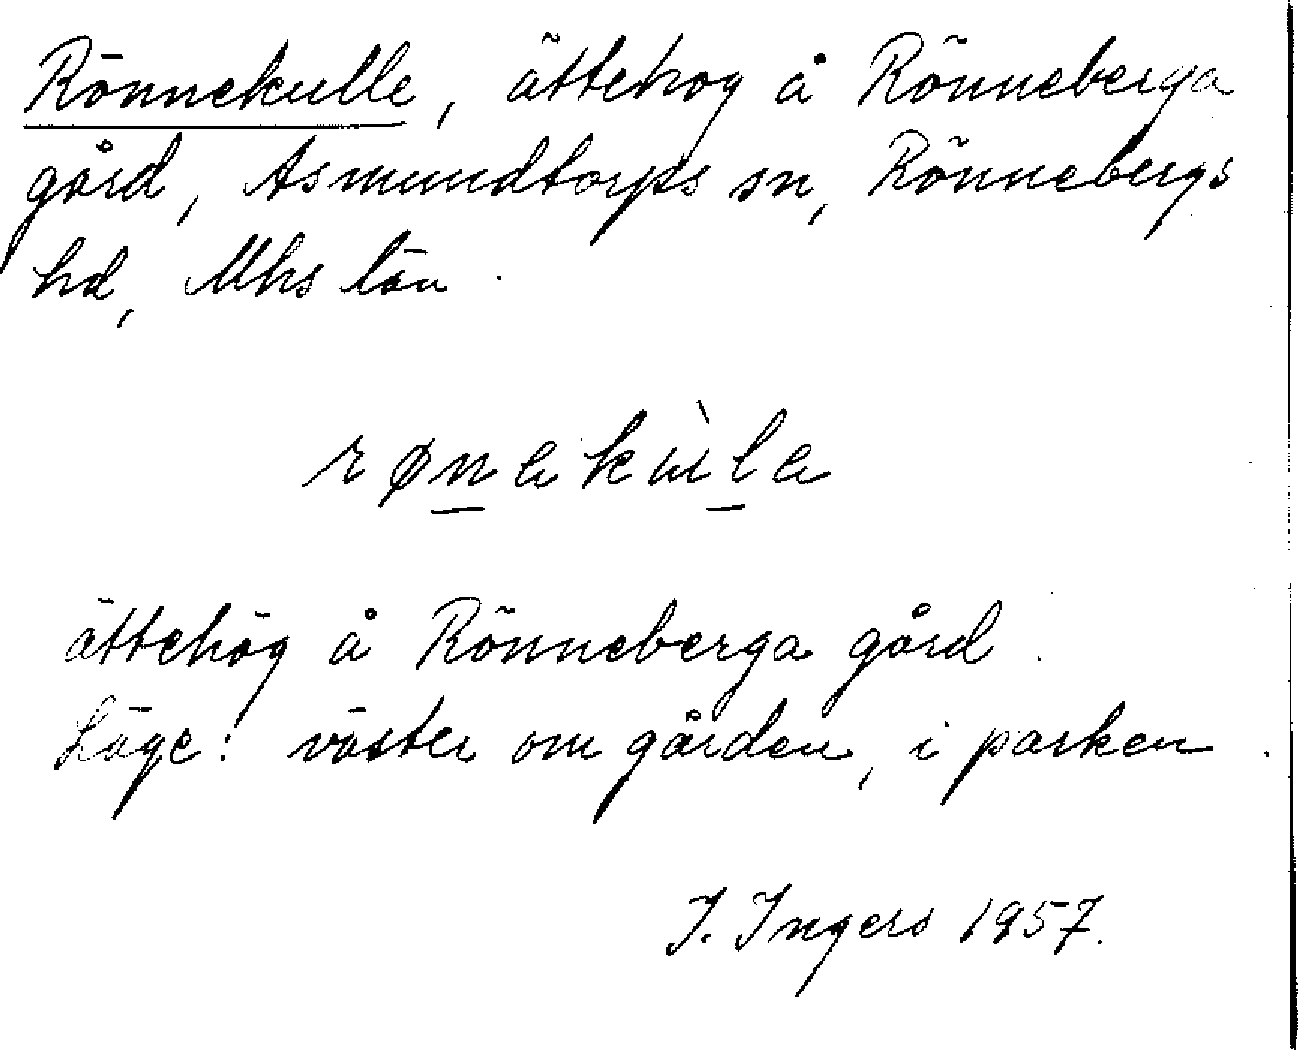 Rönnekulle, ättehög å Rönneberga
gård, Asmundtorps sn, Rönnebergs
hd, Mhs län.
rønakùla
ättehög å Rönneberga gård.
Läge: väster om gården, i parken.
I. Ingers 1957.